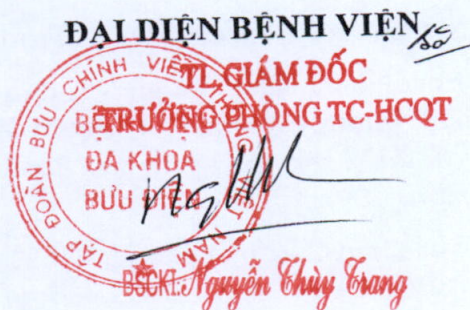 ĐẠI DIỆN BỆNH VIỆN
TL.GIÁM ĐỐC
TRƯỞNG PHÒNG TC-HCQT
TẬP ĐOÀN BƯU CHÍNH VIỄN THÔNG VIỆT NAM
BỆNH VIỆN
ĐA KHOA
BƯU ĐIỆN
BSCKI. Nguyễn Thùy Trang